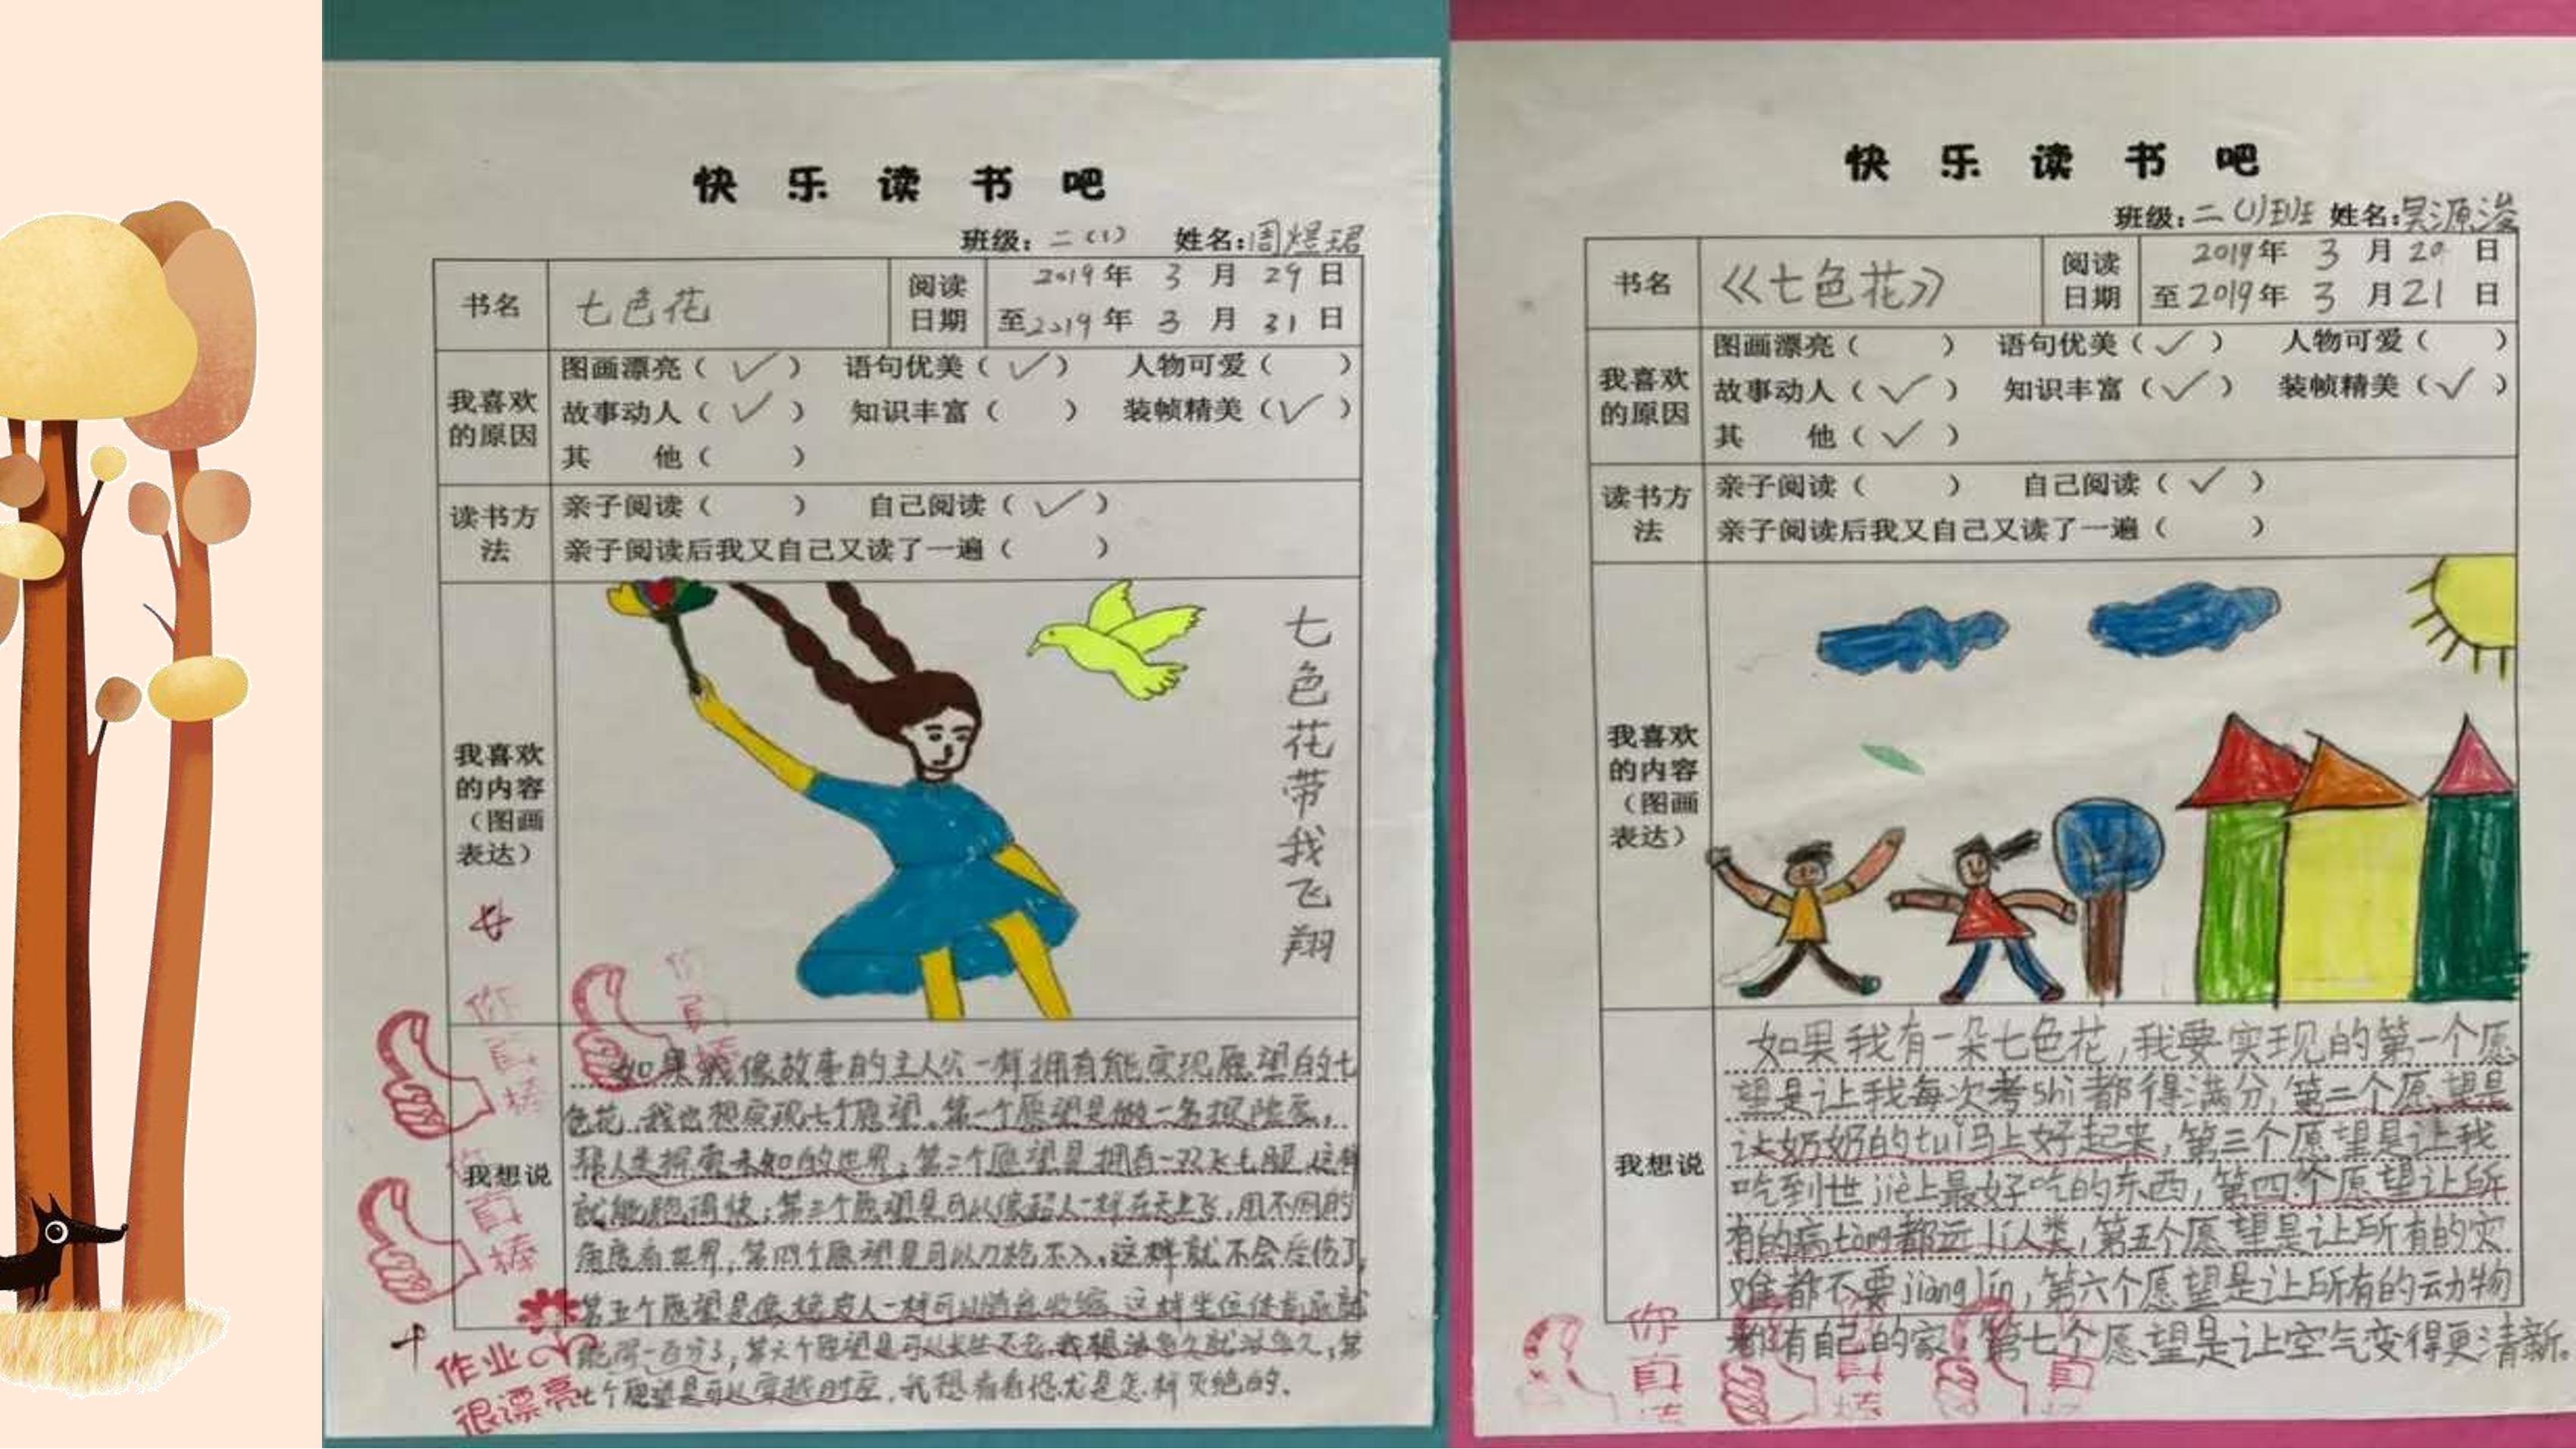 快乐读书吧
班级：二（1） 姓名：周煜珺
书名
七色花
阅读
日期
2019年 3 月 29 日
至2019年 3 月 31 日
我喜欢
的原因
图画漂亮（✓） 语句优美（✓） 人物可爱（ ）
故事动人（✓） 知识丰富（ ） 装帧精美（✓）
其 他（ ）
读书方
法
亲子阅读（ ） 自己阅读（✓）
亲子阅读后我又自己又读了一遍（ ）
我喜欢
的内容
（图画
表达）
七色花带我飞翔
我想说
如果我像故事的主人公一样拥有能实现愿望的七
色花，我也想实现七个愿望。第一个愿望是做一名探险家，
帮人类探索未知的世界；第二个愿望是拥有一双飞毛腿，这样
就能跑得快；第三个愿望是可以像超人一样在天上飞，用不同的
角度看世界，第四个愿望是可以刀枪不入，这样就不会受伤了，
第五个愿望是像 人一样可以随意收缩，这样坐位体前屈就
能得一百分了，第六个愿望是可以长生不老，我想活多久就活多久，第
七个愿望是可以穿越时空，我想看看恐龙是怎样灭绝的．
你真棒
你真棒
你真棒
作业
很漂亮
快乐读书吧
班级：二（1）班 姓名：吴源浚
书名
《七色花》
阅读
日期
2019年 3 月 20 日
至2019年 3 月 21 日
我喜欢
的原因
图画漂亮（ ） 语句优美（✓） 人物可爱（ ）
故事动人（✓） 知识丰富（✓） 装帧精美（✓）
其 他（✓）
读书方
法
亲子阅读（ ） 自己阅读（✓）
亲子阅读后我又自己又读了一遍（ ）
我喜欢
的内容
（图画
表达）
我想说
如果我有一朵七色花，我要实现的第一个愿
望是让我每次考shì都得满分，第二个愿望是
让奶奶的tuǐ马上好起来，第三个愿望是让我
吃到世jiè上最好吃的东西，第四个愿望让所
有的病tòng都远lí人类，第五个愿望是让所有的灾
难都不要jiàng lín，第六个愿望是让所有的动物
都有自己的家，第七个愿望是让空气变得更清新。
你真棒